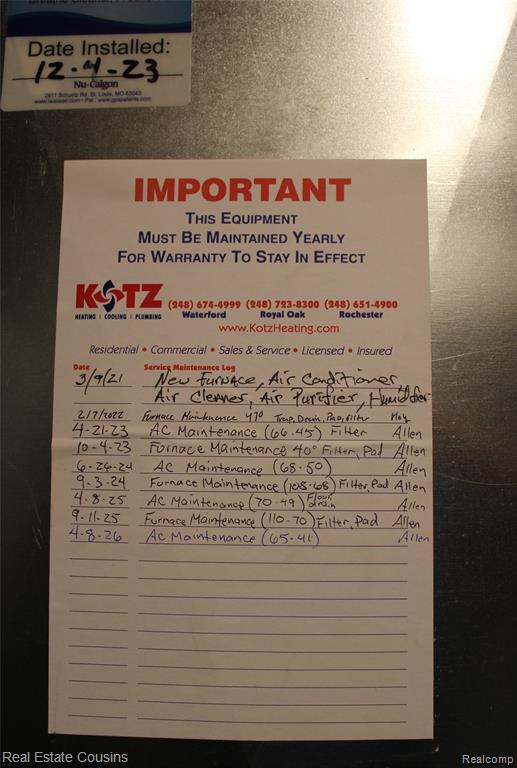 Date Installed:
12-4-23
Nu-Calgon
2611 Schuetz Rd. St. Louis, MO 63043
IMPORTANT
THIS EQUIPMENT
MUST BE MAINTAINED YEARLY
FOR WARRANTY TO STAY IN EFFECT
KOTZ
HEATING | COOLING | PLUMBING
(248) 674-4999 (248) 723-8300 (248) 651-4900
Waterford Royal Oak Rochester
www.KotzHeating.com
Residential • Commercial • Sales & Service • Licensed • Insured
Date Service Maintenance Log
3/9/21 New Furnace, Air Conditioner
Air Cleaner, Air Purifier, Humidifier
2/7/2022 Furnace Maintenance 47° Temp, Drain, Pad, Filter
4-21-23 AC Maintenance (66-45) Filter Allen
10-4-23 Furnace Maintenance 40° Filter, Pad Allen
6-26-24 AC Maintenance (68-50) Allen
9-3-24 Furnace Maintenance (108-68) Filter, Pad Allen
4-8-25 AC Maintenance (70-49) Floor drain Allen
9-11-25 Furnace Maintenance (110-70) Filter, Pad Allen
4-8-26 AC Maintenance (65-41) Allen
Real Estate Cousins
Realcomp